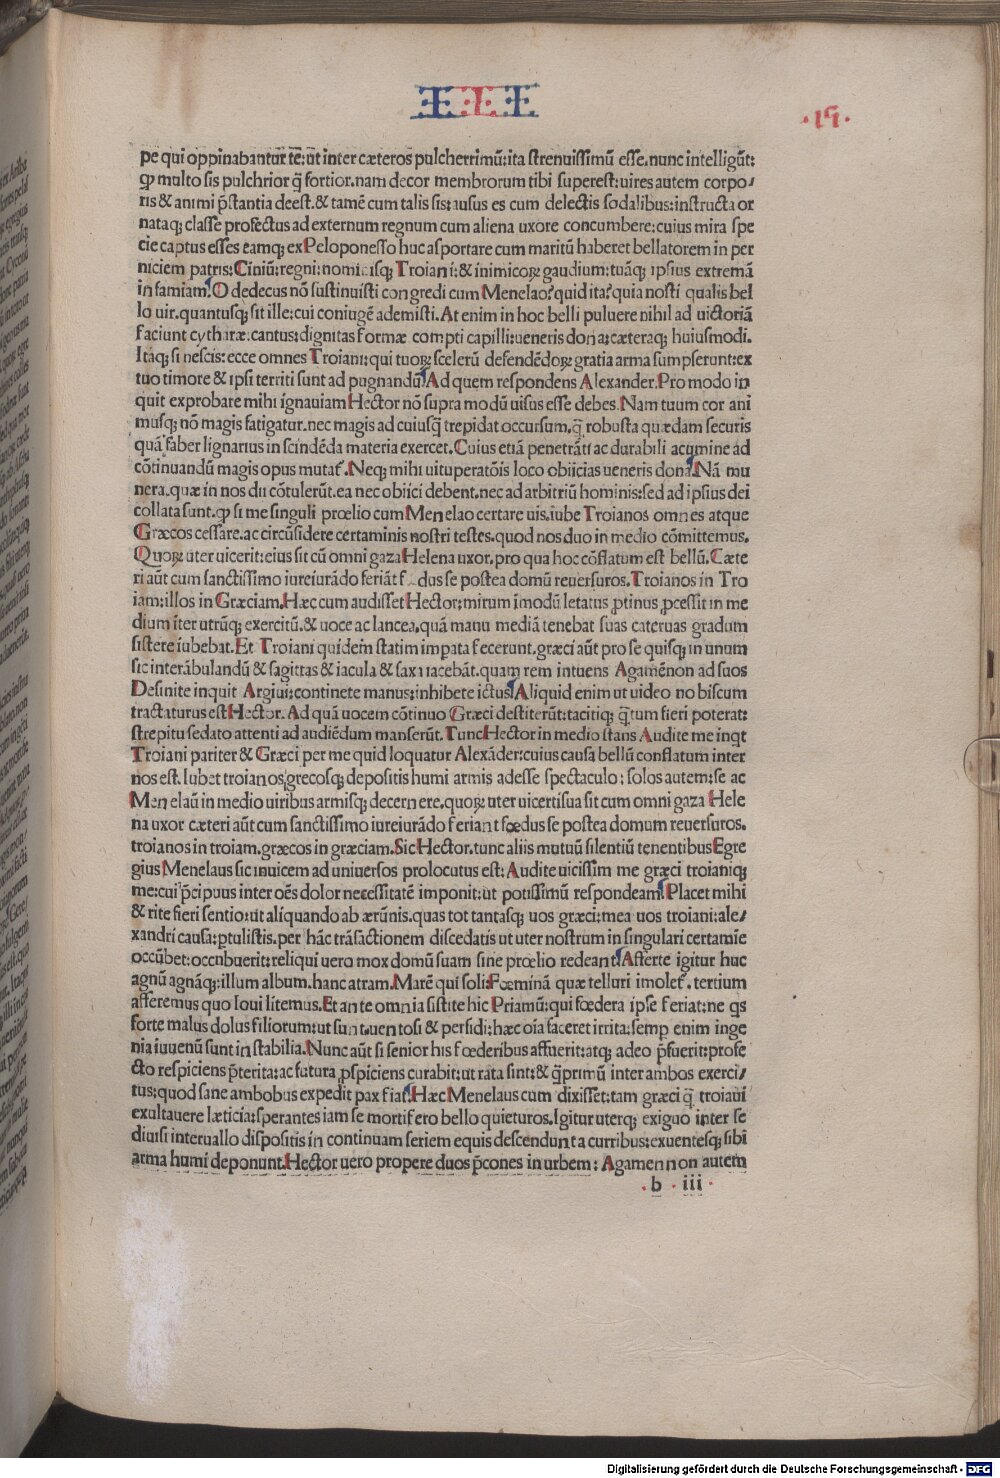 III
·15·
pe qui oppinabantur te: ut inter cæteros pulcherrimū: ita strenuissimū esse. nunc intelligūt:
ꝙ multo sis pulchrior q̄ fortior. nam decor membrorum tibi superest: uires autem corpo/
ris & animi p̄stantia deest. & tamē cum talis sis: ausus es cum delectis sodalibus: instructa or
nataq; classe profectus ad externum regnum cum aliena uxore concumbere: cuius mira spe
cie captus esses eamq; ex Peloponesso huc asportare cum maritū haberet bellatorem in per
niciem patris: Ciniū: regni: nominisq; Troiani: & inimicoꝝ gaudium: tuāq; ipsius extremā
in famiam. O dedecus nō sustinuisti congredi cum Menelao? quid ita? quia nosti qualis bel
lo uir. quantusq; sit ille: cui coniugē ademisti. At enim in hoc belli puluere nihil ad uictoriā
faciunt cytharæ. cantus: dignitas formæ compti capilli: ueneris dona: cæteraq; huiusmodi.
Itaq; si nescis: ecce omnes Troiani: qui tuoꝝ scelerū defendēdoꝝ gratia arma sumpserunt: ex
tuo timore & ipsi territi sunt ad pugnandū. Ad quem respondens Alexander. Pro modo in
quit exprobare mihi ignauiam Hector nō supra modū uisus esse debes. Nam tuum cor ani
musq; nō magis fatigatur. nec magis ad cuiusq̄ trepidat occursum. q̄ robusta quædam securis
quā faber lignarius in scindēda materia exercet. Cuius etiā penetrāti ac durabili acumine ad
cōtinuandū magis opus mutat. Neq; mihi uituperatōis loco obiicias ueneris dona. Nā mu
nera. quæ in nos dii cōtulerūt. ea nec obiici debent. nec ad arbitriū hominis: sed ad ipsius dei
collata sunt. ꝙ si me singuli prœlio cum Menelao certare uis. iube Troianos omnes atque
Græcos cessare. ac circūsidere certaminis nostri testes. quod nos duo in medio cōmittemus.
Quoꝝ uter uicerit: eius sit cū omni gaza Helena uxor. pro qua hoc cōflatum est bellū. Cæte
ri aūt cum sanctissimo iureiurādo feriāt f dus se postea domū reuersuros. Troianos in Tro
iam: illos in Græciam. Hæc cum audisset Hector: mirum īmodū letatus ꝓtinus ꝓcessit in me
dium īter utrūq; exercitū. & uoce ac lancea. quā manu mediā tenebat suas cateruas gradum
sistere iubebat. Et Troiani quidem statim impata fecerunt. græci aūt pro se quisq; in unum
sic interābulandū & sagittas & iacula & saxa iacebāt. quam rem intuens Agamēnon ad suos
Desinite inquit Argiui: continete manus: inhibete ictus. Aliquid enim ut uideo nobiscum
tractaturus est Hector. Ad quā uocem cōtinuo Græci destiterūt: tacitiq; q̄tum fieri poterat:
strepitu sedato attenti ad audiēdum manserūt. Tunc Hector in medio stans Audite me inqt
Troiani pariter & Græci per me quid loquatur Alexāder: cuius causa bellū conflatum inter
nos est. Iubet troianos, grecosq; depositis humi armis adesse spectaculo: solos autem: se ac
Menelaū in medio uiribus armisq; decernere. quoꝝ uter uicerit sua sit cum omni gaza Hele
na uxor cæteri aūt cum sanctissimo iureiurādo feriant fœdus se postea domum reuersuros.
troianos in troiam. græcos in græciam. Sic Hector. tunc aliis mutuū silentiū tenentibus Egre
gius Menelaus sic inuicem ad uniuersos prolocutus est: Audite uicissim me græci troianiq;
me: cui p̄cipuus inter oēs dolor necessitatē imponit: ut potissimū respondeam. Placet mihi
& rite fieri sentio: ut aliquando ab ærūnis. quas tot tantasq; uos græci: mea uos troiani: ale/
xandri causa: ꝑtulistis. per hāc trāsactionem discedatis ut uter nostrum in singulari certamīe
occūbet: occnbuerit: reliqui uero mox domū suam sine prœlio redeant. Afferte igitur huc
agnū agnāq;: illum album. hanc atram. Marē qui soli: Fœminā quæ telluri imolet. tertium
afferemus quo Ioui litemus. Et ante omnia sistite hic Priamū: qui fœdera ipse feriat: ne qs
forte malus dolus filiorum: ut sunt uentosi & persidi: hæc oīa faceret irrita: semp enim inge
nia iuuenū sunt instabilia. Nunc aūt si senior his fœderibus affuerit: atq; adeo p̄fuerit: profe
cto respiciens p̄terita: ac futura ꝓspiciens curabit: ut rata sint: & q̄primū inter ambos exerci/
tus: quod sane ambobus expedit pax fiat. Hæc Menelaus cum dixisset: tam græci q̄ troiaui
exultauere læticia: sperantes iam se mortifero bello quieturos. Igitur uterq; exiguo inter se
diuisi interuallo dispositis in continuam seriem equis descendunt a curribus: exuentesq; sibi
arma humi deponunt. Hector uero propere duos p̄cones in urbem: Agamennon autem
. b . iii .
Digitalisierung gefördert durch die Deutsche Forschungsgemeinschaft - DFG